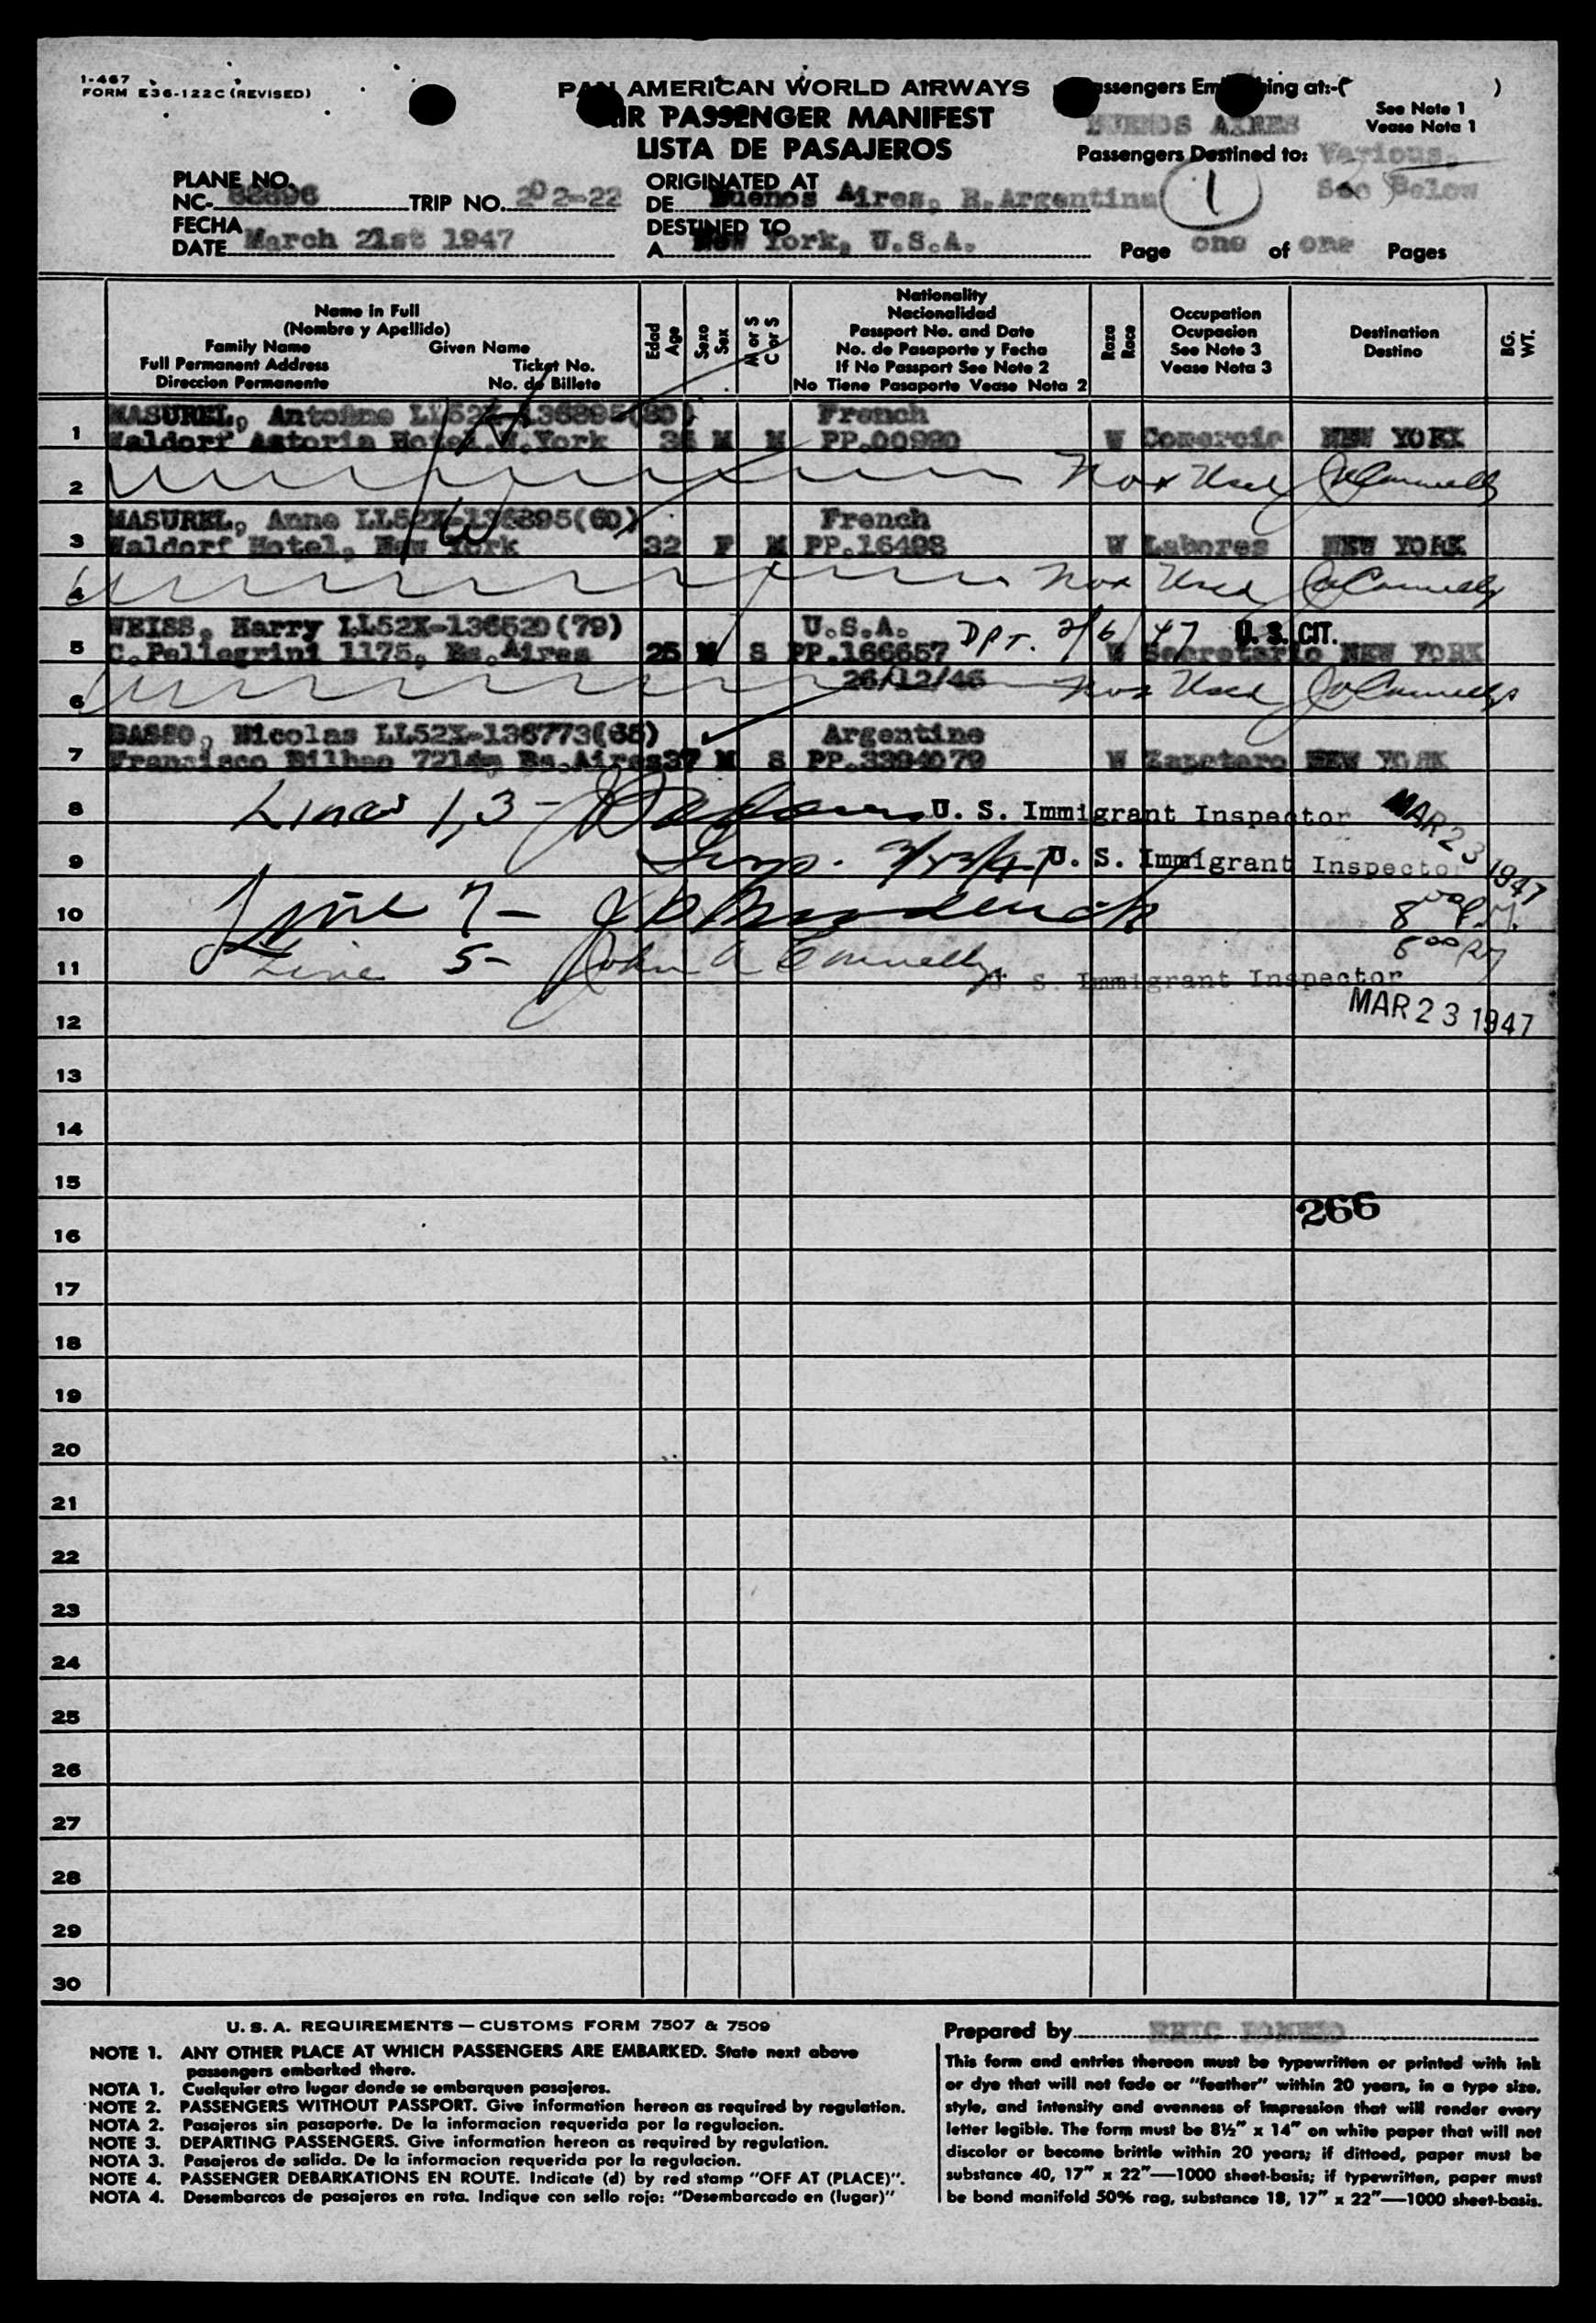 1-467
FORM E36-122C (REVISED)
PAN AMERICAN WORLD AIRWAYS
AIR PASSENGER MANIFEST
LISTA DE PASAJEROS
Passengers Embarking at:-( )
See Note 1
Vease Nota 1
BUENOS AIRES
Passengers Destined to: Various
See Below
PLANE NO.
NC- 88896 TRIP NO. 202-22
ORIGINATED AT
DE Buenos Aires, R.Argentina
1
FECHA
DATE March 21st 1947
DESTINED TO
A New York, U.S.A.
Page one of one Pages
Name in Full
(Nombre y Apellido)
Family Name Given Name
Full Permanent Address Ticket No.
Direccion Permanente No. de Billete
Edad
Age
Sexo
Sex
M or S
C or S
Nationality
Nacionalidad
Passport No. and Date
No. de Pasaporte y Fecha
If No Passport See Note 2
No Tiene Pasaporte Vease Nota 2
Raza
Race
Occupation
Ocupacion
See Note 3
Vease Nota 3
Destination
Destino
BG.
WT.
MASUREL, Antoine LL52X-136895(80) French
1 Waldorf Astoria Hotel.N.York M M PP.00980 W Comercio NEW YORK
2 Not Used JAConnelly
MASUREL, Anne LL52X-136895(60) French
3 Waldorf Hotel, New York 32 F M PP.16498 W Labores NEW YORK
4 Not Used JAConnelly
WEISS, Harry LL52X-136520(79) U.S.A. DPT. 2/6/47 U. S. CIT.
5 C.Pellegrini 1175, Bs.Aires 25 M S PP.166657 W Secretario NEW YORK
26/12/46
6 Not Used JAConnelly
BASSO, Nicolas LL52X-136773(65) Argentine
7 Francisco Bilbao 7214, Bs.Aires 37 M S PP.3394079 W Zapatero NEW YORK
8 Lines 1,3 - U. S. Immigrant Inspector MAR 23 1947
9 Insp. 3/23/47 U. S. Immigrant Inspector
10 Line 7 - 8 00 P.M.
11 Line 5 - John A Connelly 8 00 PM
U. S. Immigrant Inspector
12 MAR 23 1947
13
14
15
266
16
17
18
19
20
21
22
23
24
25
26
27
28
29
30
U. S. A. REQUIREMENTS — CUSTOMS FORM 7507 & 7509
NOTE 1. ANY OTHER PLACE AT WHICH PASSENGERS ARE EMBARKED. State next above
passengers embarked there.
NOTA 1. Cualquier otro lugar donde se embarquen pasajeros.
NOTE 2. PASSENGERS WITHOUT PASSPORT. Give information hereon as required by regulation.
NOTA 2. Pasajeros sin pasaporte. De la informacion requerida por la regulacion.
NOTE 3. DEPARTING PASSENGERS. Give information hereon as required by regulation.
NOTA 3. Pasajeros de salida. De la informacion requerida por la regulacion.
NOTE 4. PASSENGER DEBARKATIONS EN ROUTE. Indicate (d) by red stamp "OFF AT (PLACE)".
NOTA 4. Desembarcos de pasajeros en rota. Indique con sello rojo: "Desembarcado en (lugar)"
Prepared by
This form and entries thereon must be typewritten or printed with ink
or dye that will not fade or "feather" within 20 years, in a type size,
style, and intensity and evenness of impression that will render every
letter legible. The form must be 8½" x 14" on white paper that will not
discolor or become brittle within 20 years; if dittoed, paper must be
substance 40, 17" x 22"—1000 sheet-basis; if typewritten, paper must
be bond manifold 50% rag, substance 18, 17" x 22"—1000 sheet-basis.